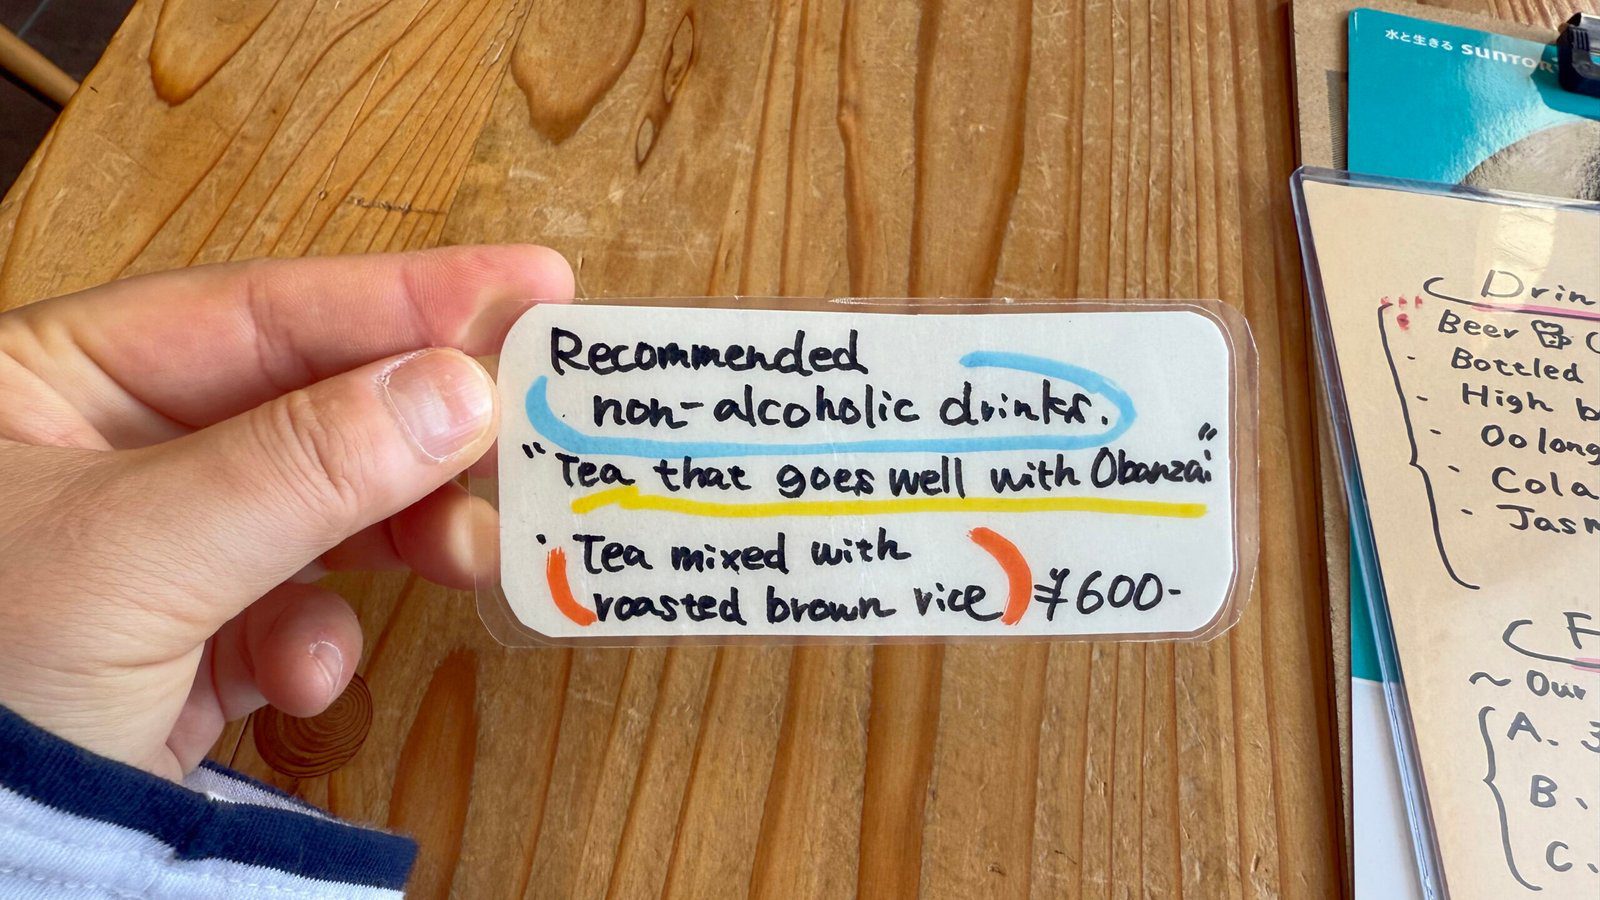 Recommended
non-alcoholic drinks.
"Tea that goes well with Obanzai"
・Tea mixed with
roasted brown rice ¥600-
水と生きる SUNTOR
Drin
Beer
・Bottled
・High b
・Oolong
・Cola
・Jasm
F
~Our
A. 3
B.
C.